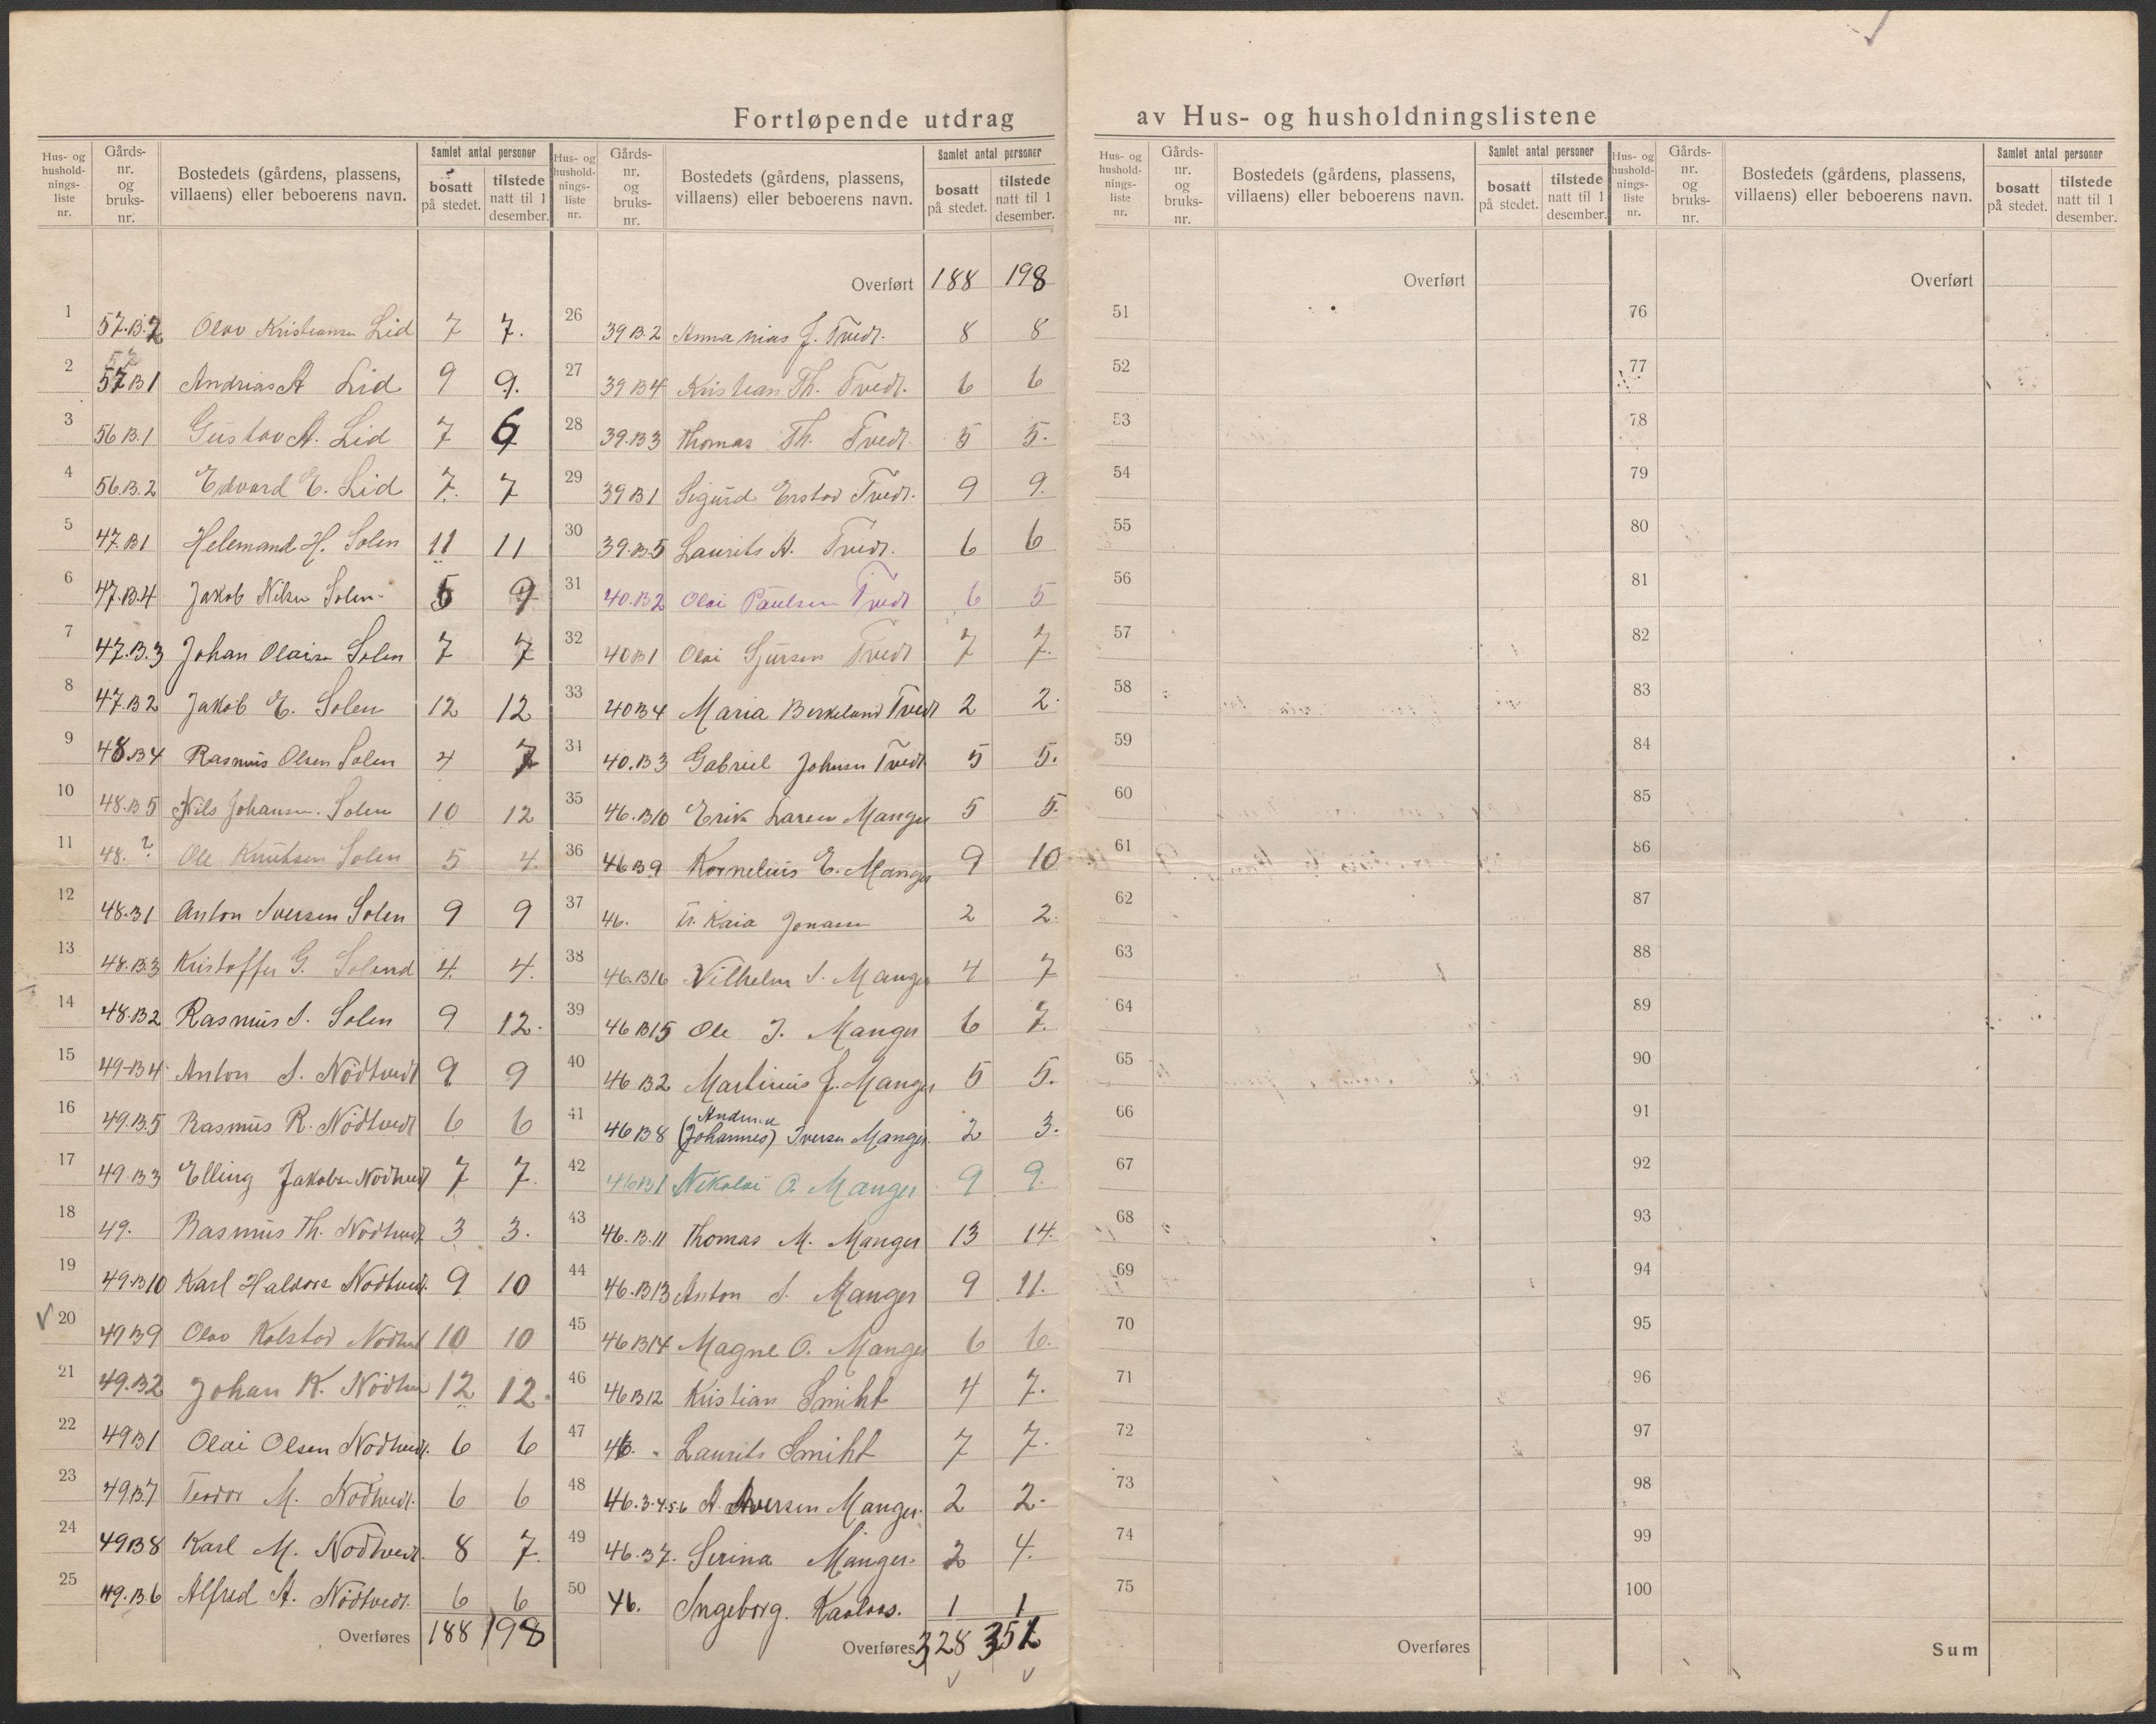 Fortløpende utdrag av Hus- og husholdningslistene
Hus- og hushold-nings-liste nr.
Gårds-nr. og bruks-nr.
Bostedets (gårdens, plassens, villaens) eller beboerens navn.
Samlet antal personer
bosatt på stedet.
tilstede natt til 1 desember.
1 57.B.2 Olav Kristiansen Lid 7 7.
2 57B1 Andrias A Lid 9 9.
3 56B.1 Gustav A. Lid 7 6
4 56.B.2 Edvard E. Lid 7. 7
5 47.B1 Helemand H. Solen 11 11
6 47.B.4 Jakob Nilsen Solen 5 9
7 47.B.3 Johan Olaisn Solen 7 7
8 47.B2 Jakob E. Solen 12 12
9 48.B4 Rasmus Olsen Solen 4 7
10 48.B5 Nils Johansen. Solen 10 12
11 48. ? Ole Knutsen Solen 5 4
12 48.B1 Anton Iversen Solen 9 9
13 48.B.3 Kristoffer G. Solend 4. 4.
14 48.B2 Rasmus I. Solen 9 12.
15 49-B4 Anton I. Nödtvedt 9 9
16 49.B.5 Rasmus R. Nödtvedt 6 6
17 49.B3 Elling Jakobsn Nödtvedt 7 7.
18 49. Rasmus Th. Nödtvedt 3 3.
19 49.B10 Karl Haldors Nödtvedt. 9 10
20 49B9 Olav Kolstad Nödtvedt 10 10
21 49.B2 Johan K. Nödtve 12 12.
22 49B1 Olai Olsen Nödtvedt. 6 6
23 49.B.7 Teodor M. Nödtvedt. 6 6
24 49B8 Karl M. Nödtvedt. 8 7.
25 49.B.6 Alfred A. Nödtvedt. 6 6
Overføres 188 198
Hus- og hushold-nings-liste nr.
Gårds-nr. og bruks-nr.
Bostedets (gårdens, plassens, villaens) eller beboerens navn.
Samlet antal personer
bosatt på stedet.
tilstede natt til 1 desember.
Overført 188 198
26 39B.2 Anna nias J. Tvedt. 8 8
27 39B4 Kristian Th. Tvedt. 6 6
28 39.B3 Thomas Th. Tvedt. 5 5.
29 39B1 Sigurd Erstad Tvedt. 9 9.
30 39.B.5 Laurits A. Tvedt. 6 6
31 40.B2 Olai Paulsen Tvedt 6 5
32 40B1 Olai Sjursen Tvedt 7 7.
33 40B4 Maria Birkeland Tvedt 2 2.
34 40.B3 Gabriel Johnsen Tvedt 5 5.
35 46.B10 Erik Larsen Manger 5 5.
36 46B9 Kornelius E. Manger 9 10
37 46. Fr. Kaia Jonassen 2 2.
38 46.B16 Vilhelm I. Manger 4 7
39 46B15 Ole J. Manger 6 7.
40 46B2 Martinus J. Manger 5 5.
41 46B8 (Johannes) Iversn Manger. 2 3.
42 46B1 Nikolai O. Manger 9 9.
43 46.B.11 Thomas M. Manger 13 14.
44 46.B13 Anton I. Manger 9 11.
45 46B14 Magne O. Manger 6 6.
46 46B12 Kristian Smiht 4 7.
47 46. " Laurits Smiht 7 7.
48 46.3-4.5 6 A. Iversen Manger. 2 2.
49 46.B7. Serina Manger. 2 4.
50 46. Ingeborg. Karlsos. 1 1
Overføres 328 351
Hus- og hushold-nings-liste nr.
Gårds-nr. og bruks-nr.
Bostedets (gårdens, plassens, villaens) eller beboerens navn.
Samlet antal personer
bosatt på stedet.
tilstede natt til 1 desember.
Overført
51
52
53
54
55
56
57
58
59
60
61
62
63
64
65
66
67
68
69
70
71
72
73
74
75
Overføres
Hus- og hushold-nings-liste nr.
Gårds-nr. og bruks-nr.
Bostedets (gårdens, plassens, villaens) eller beboerens navn.
Samlet antal personer
bosatt på stedet.
tilstede natt til 1 desember.
Overført
76
77
78
79
80
81
82
83
84
85
86
87
88
89
90
91
92
93
94
95
96
97
98
99
100
Sum